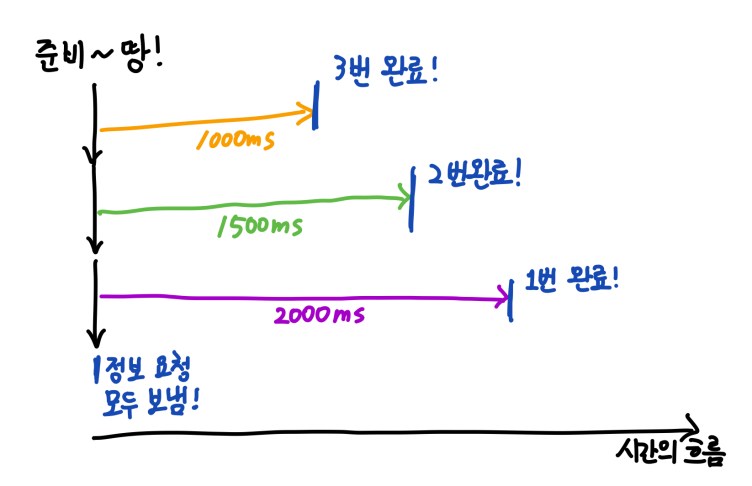 준비~땅!
3번 완료!
1000ms
2번완료!
1500ms
1번 완료!
2000ms
정보 요청
모두 보냄!
시간의 흐름